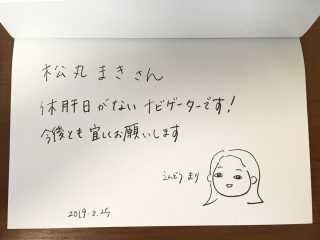 松丸まきさん
休肝日がない ナビゲーターです!
今後とも宜しくお願いします
えんどう まり
2019.2.25